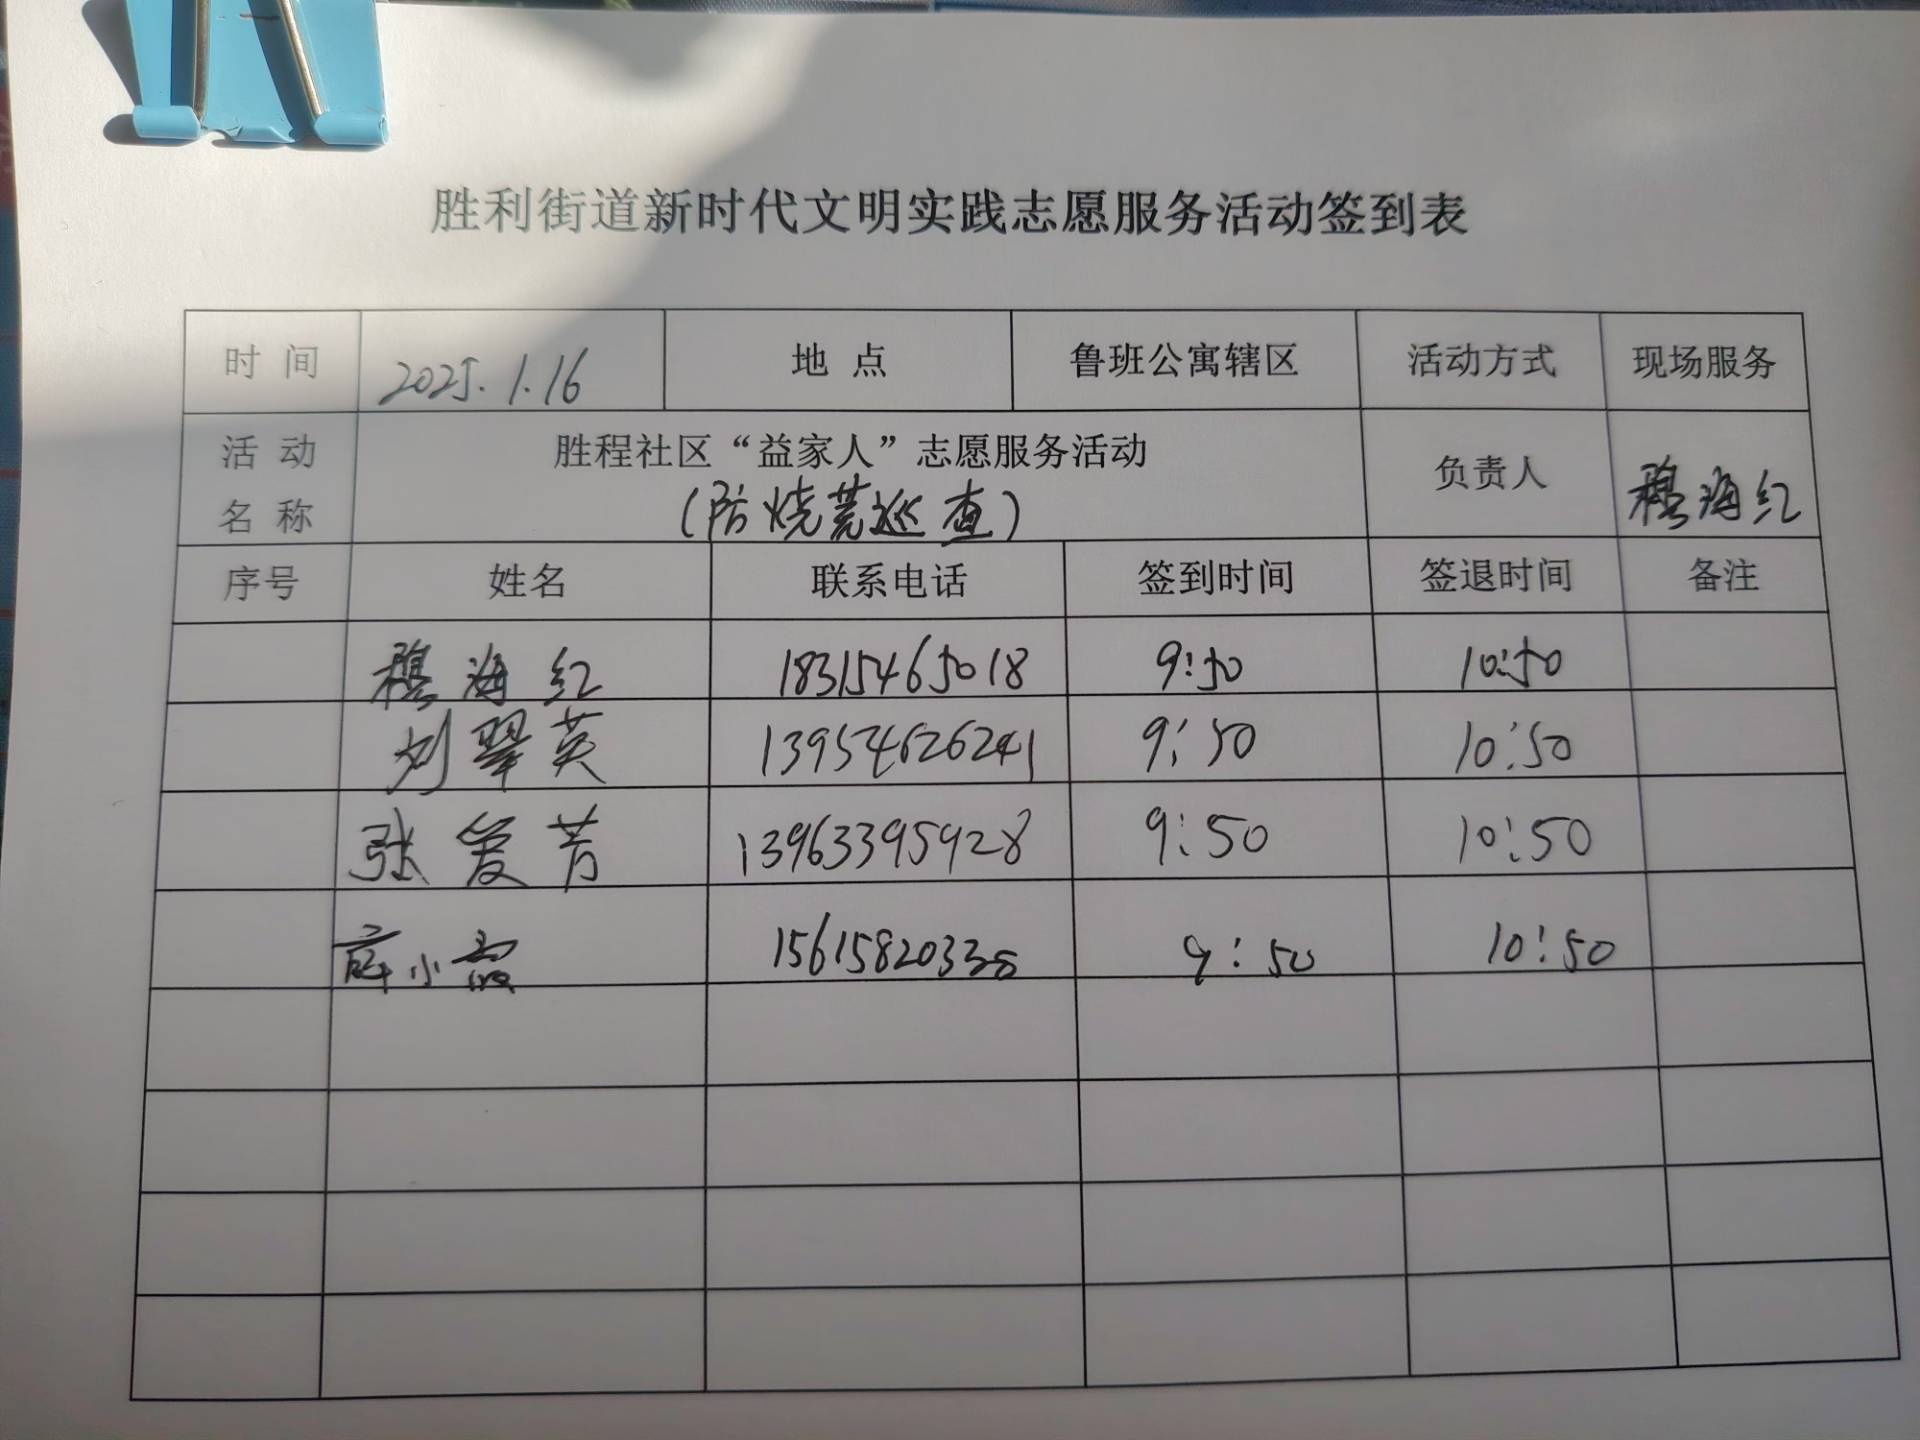 胜利街道新时代文明实践志愿服务活动签到表
时 间 2025.1.16 地 点 鲁班公寓辖区 活动方式 现场服务
活 动 名 称 胜程社区“益家人”志愿服务活动 负责人 穆海红
(防烧荒巡查)
序号 姓名 联系电话 签到时间 签退时间 备注
穆海红 18315465018 9:50 10:50
刘翠英 13954626241 9:50 10:50
张爱芳 13963395928 9:50 10:50
薛小 9:50 10:50